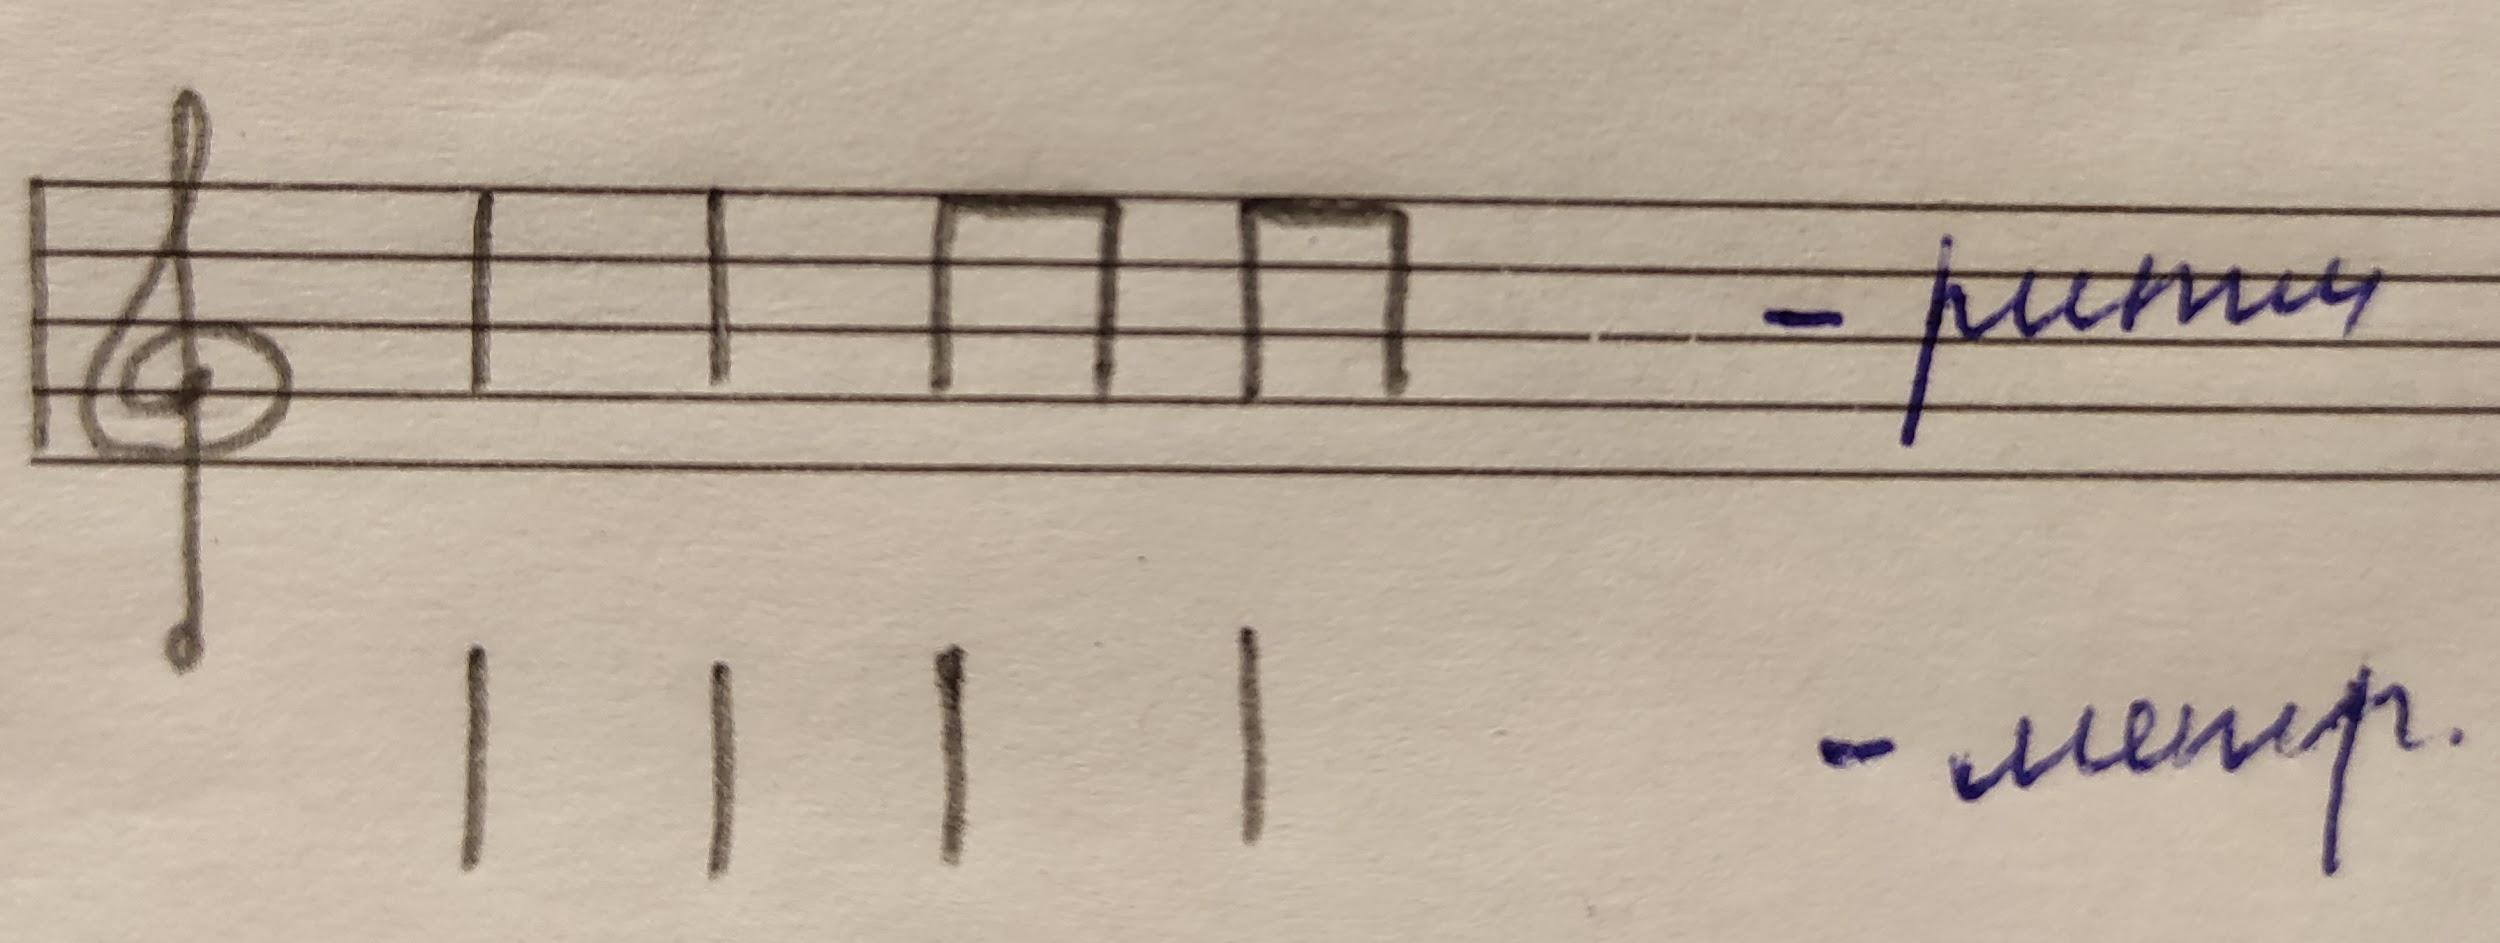 - ритм
- метр.